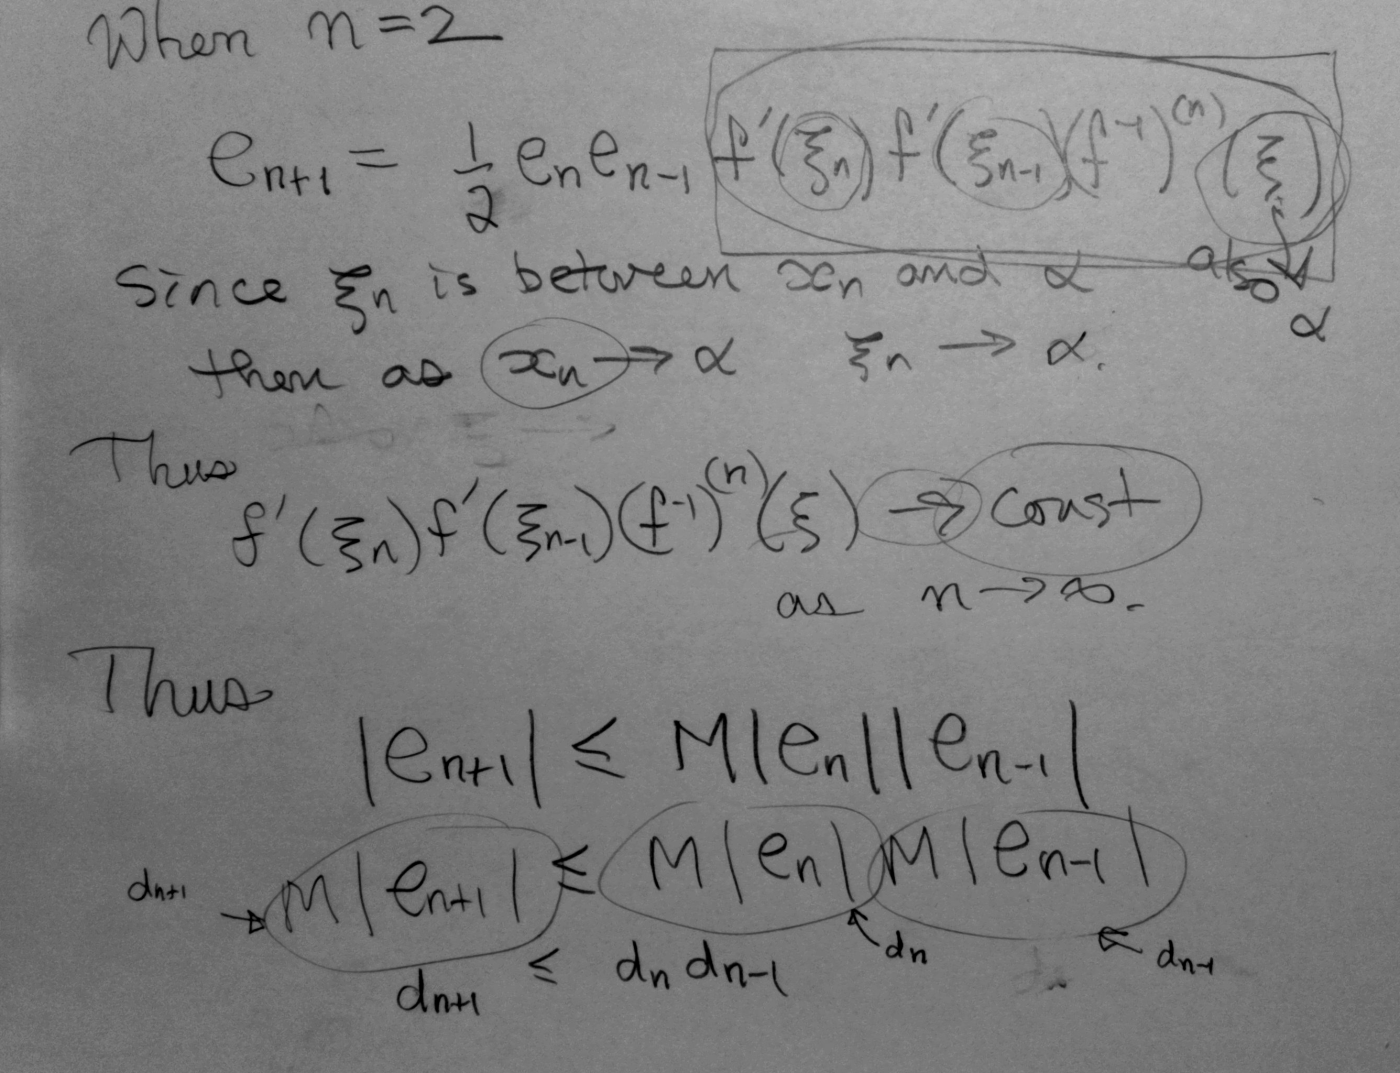 When n=2
e_{n+1} = 1/2 e_n e_{n-1} f'(ξ_n) f'(ξ_{n-1}) (f^{-1})^{(n)} (ξ)
Since ξ_n is between x_n and α also α
then as x_n → α ξ_n → α.
Thus
f'(ξ_n) f'(ξ_{n-1}) (f^{-1})^{(n)} (ξ) → const
as n → ∞.
Thus
|e_{n+1}| ≤ M|e_n||e_{n-1}|
d_{n+1} M|e_{n+1}| ≤ M|e_n| M|e_{n-1}|
d_n d_{n-1}
d_{n+1} ≤ d_n d_{n-1}